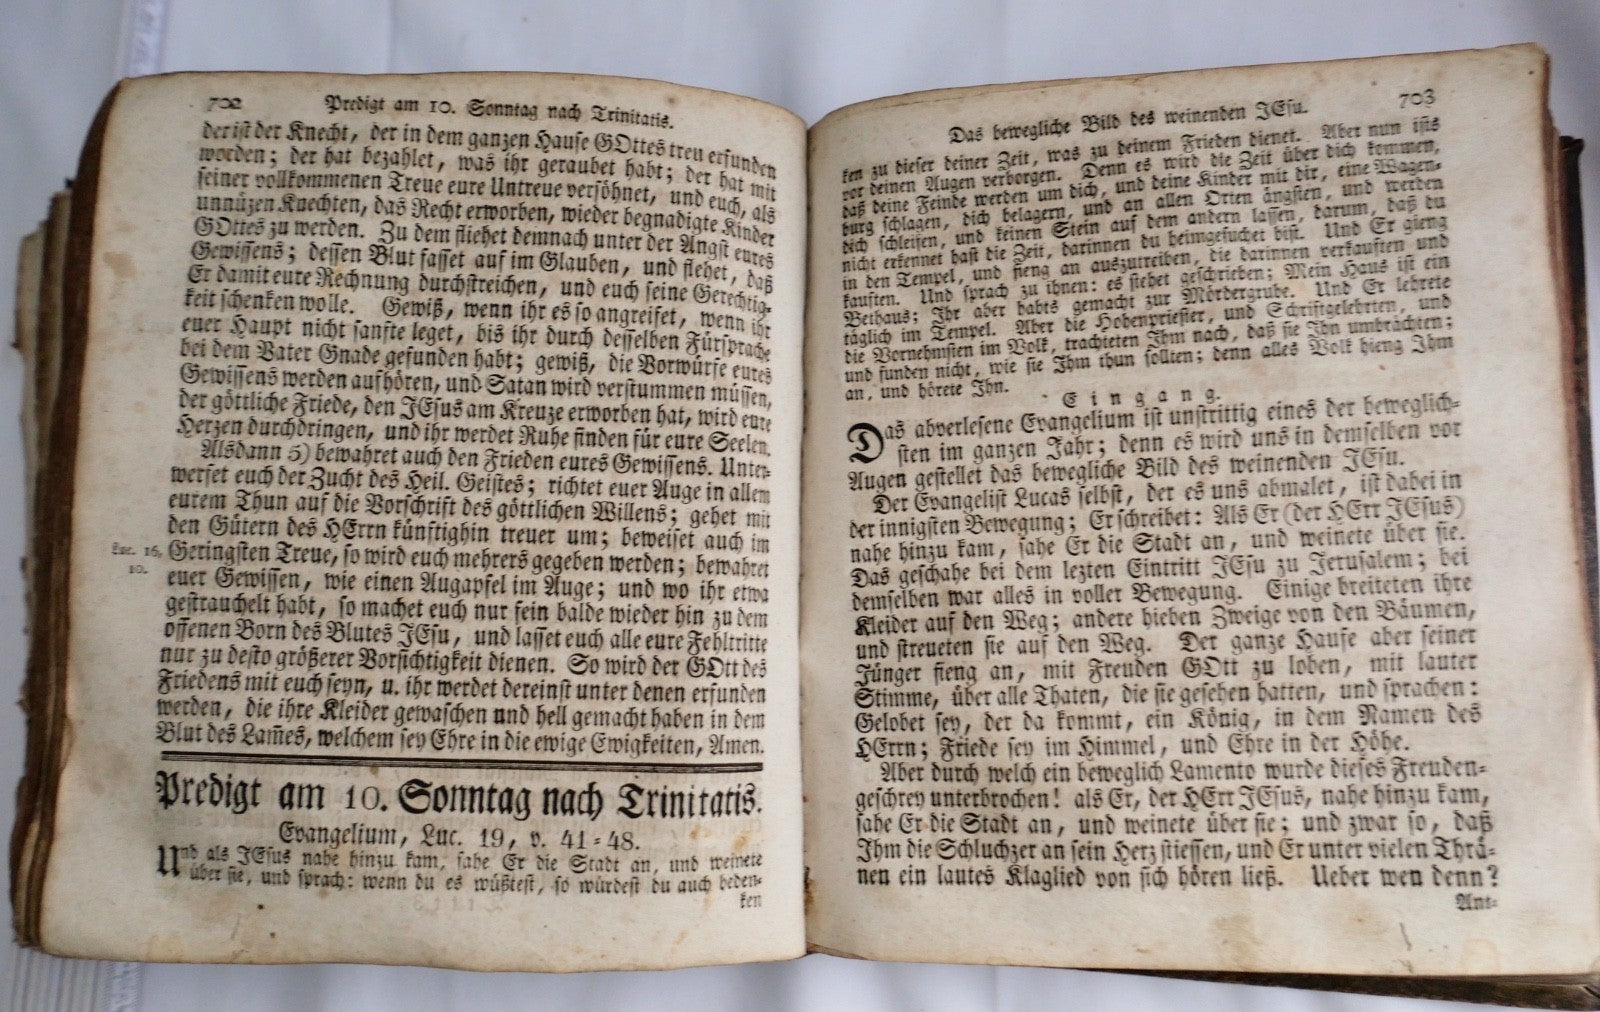 702 Predigt am 10. Sonntag nach Trinitatis.
der ist der Knecht, der in dem ganzen Hause GOttes treu erfunden
worden; der hat bezahlet, was ihr geraubet habt; der hat mit
seiner vollkommenen Treue eure Untreue versöhnet, und euch, als
unnüzen Knechten, das Recht erworben, wieder begnadigte Kinder
GOttes zu werden. Zu dem fliehet demnach unter der Angst eures
Gewissens; dessen Blut fasset auf im Glauben, und flehet, daß
Er damit eure Rechnung durchstreichen, und euch seine Gerechtig-
keit schenken wolle. Gewiß, wenn ihr es so angreifet, wenn ihr
euer Haupt nicht sanfte leget, bis ihr durch desselben Fürsprache
bei dem Vater Gnade gefunden habt; gewiß, die Vorwürfe eures
Gewissens werden aufhören, und Satan wird verstummen müssen,
der göttliche Friede, den JEsus am Kreuze erworben hat, wird eure
Herzen durchdringen, und ihr werdet Ruhe finden für eure Seelen.
Alsdann 5) bewahret auch den Frieden eures Gewissens. Unter-
werfet euch der Zucht des Heil. Geistes; richtet euer Auge in allem
eurem Thun auf die Vorschrift des göttlichen Willens; gehet mit
den Gütern des HErrn künftighin treuer um; beweiset auch im
Luc. 16, Geringsten Treue, so wird euch mehrers gegeben werden; bewahret
10. euer Gewissen, wie einen Augapfel im Auge; und wo ihr etwa
gestrauchelt habt, so machet euch nur fein balde wieder hin zu dem
offenen Born des Blutes JEsu, und lasset euch alle eure Fehltritte
nur zu desto größerer Vorsichtigkeit dienen. So wird der GOtt des
Friedens mit euch seyn, u. ihr werdet dereinst unter denen erfunden
werden, die ihre Kleider gewaschen und hell gemacht haben in dem
Blut des Lam̄es, welchem sey Ehre in die ewige Ewigkeiten, Amen.
Predigt am 10. Sonntag nach Trinitatis.
Evangelium, Luc. 19, v. 41-48.
Und als JEsus nahe hinzu kam, sahe Er die Stadt an, und weinete
über sie, und sprach: wenn du es wüßtest, so würdest du auch beden-
ken
Das bewegliche Bild des weinenden JEsu. 703
ken zu dieser deiner Zeit, was zu deinem Frieden dienet. Aber nun ists
vor deinen Augen verborgen. Denn es wird die Zeit über dich kommen,
daß deine Feinde werden um dich, und deine Kinder mit dir, eine Wagen-
burg schlagen, dich belagern, und an allen Orten ängsten, und werden
dich schleifen, und keinen Stein auf dem andern lassen, darum, daß du
nicht erkennet hast die Zeit, darinnen du heimgesuchet bist. Und Er gieng
in den Tempel, und fieng an auszutreiben, die darinnen verkauften und
kauften. Und sprach zu ihnen: es stehet geschrieben; Mein Haus ist ein
Bethaus; Ihr aber habts gemacht zur Mördergrube. Und Er lehrete
täglich im Tempel. Aber die Hohenpriester, und Schriftgelehrten, und
die Vornehmsten im Volk, trachteten Ihm nach, daß sie Ihn umbrächten;
und funden nicht, wie sie Ihm thun sollten; denn alles Volk hieng Ihm
an, und hörete Ihn.
Eingang.
Das abverlesene Evangelium ist unstrittig eines der beweglich-
sten im ganzen Jahr; denn es wird uns in demselben vor
Augen gestellet das bewegliche Bild des weinenden JEsu.
Der Evangelist Lucas selbst, der es uns abmalet, ist dabei in
der innigsten Bewegung; Er schreibet: Als Er (der HErr JEsus)
nahe hinzu kam, sahe Er die Stadt an, und weinete über sie.
Das geschahe bei dem lezten Eintritt JEsu zu Jerusalem; bei
demselben war alles in voller Bewegung. Einige breiteten ihre
Kleider auf den Weg; andere hieben Zweige von den Bäumen,
und streueten sie auf den Weg. Der ganze Haufe aber seiner
Jünger fieng an, mit Freuden GOtt zu loben, mit lauter
Stimme, über alle Thaten, die sie gesehen hatten, und sprachen:
Gelobet sey, der da kommt, ein König, in dem Namen des
HErrn; Friede sey im Himmel, und Ehre in der Höhe.
Aber durch welch ein beweglich Lamento wurde dieses Freuden-
geschrey unterbrochen! als Er, der HErr JEsus, nahe hinzu kam,
sahe Er die Stadt an, und weinete über sie; und zwar so, daß
Ihm die Schluchzer an sein Herz stiessen, und Er unter vielen Thrä-
nen ein lautes Klaglied von sich hören ließ. Ueber wen denn?
Ant-